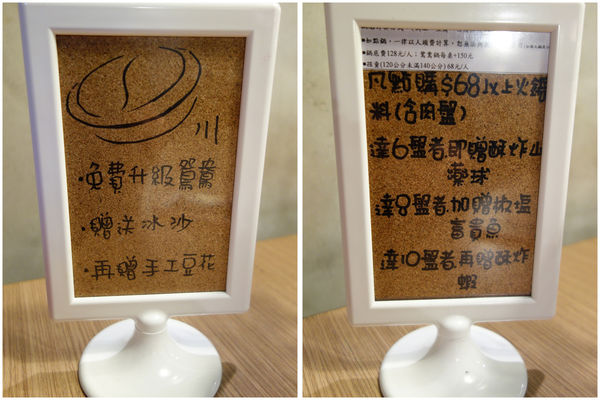 川
·免費升級鴛鴦
·贈送冰沙
·再贈手工豆花
●如點鍋，一律以人頭費計算，恕無法
●鍋底費128元/人；鴛鴦鍋每桌+150元
●孩童(120公分未滿140公分)68元/人
凡點購$68以上火鍋
料(含肉盤)
達6盤者.即贈酥炸山
藥球
達8盤者.加贈椒塩
富貴魚
達10盤者.再贈酥炸
蝦